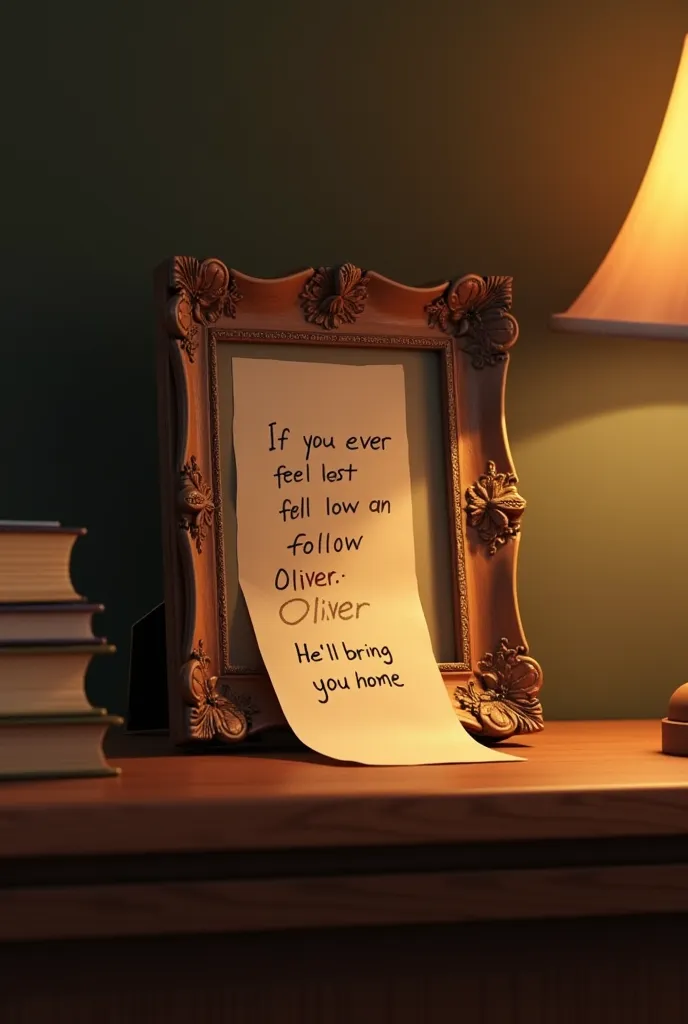 If you ever
feel lest
fell low an
follow
Oliver.·
Oliver
He'll bring
you home